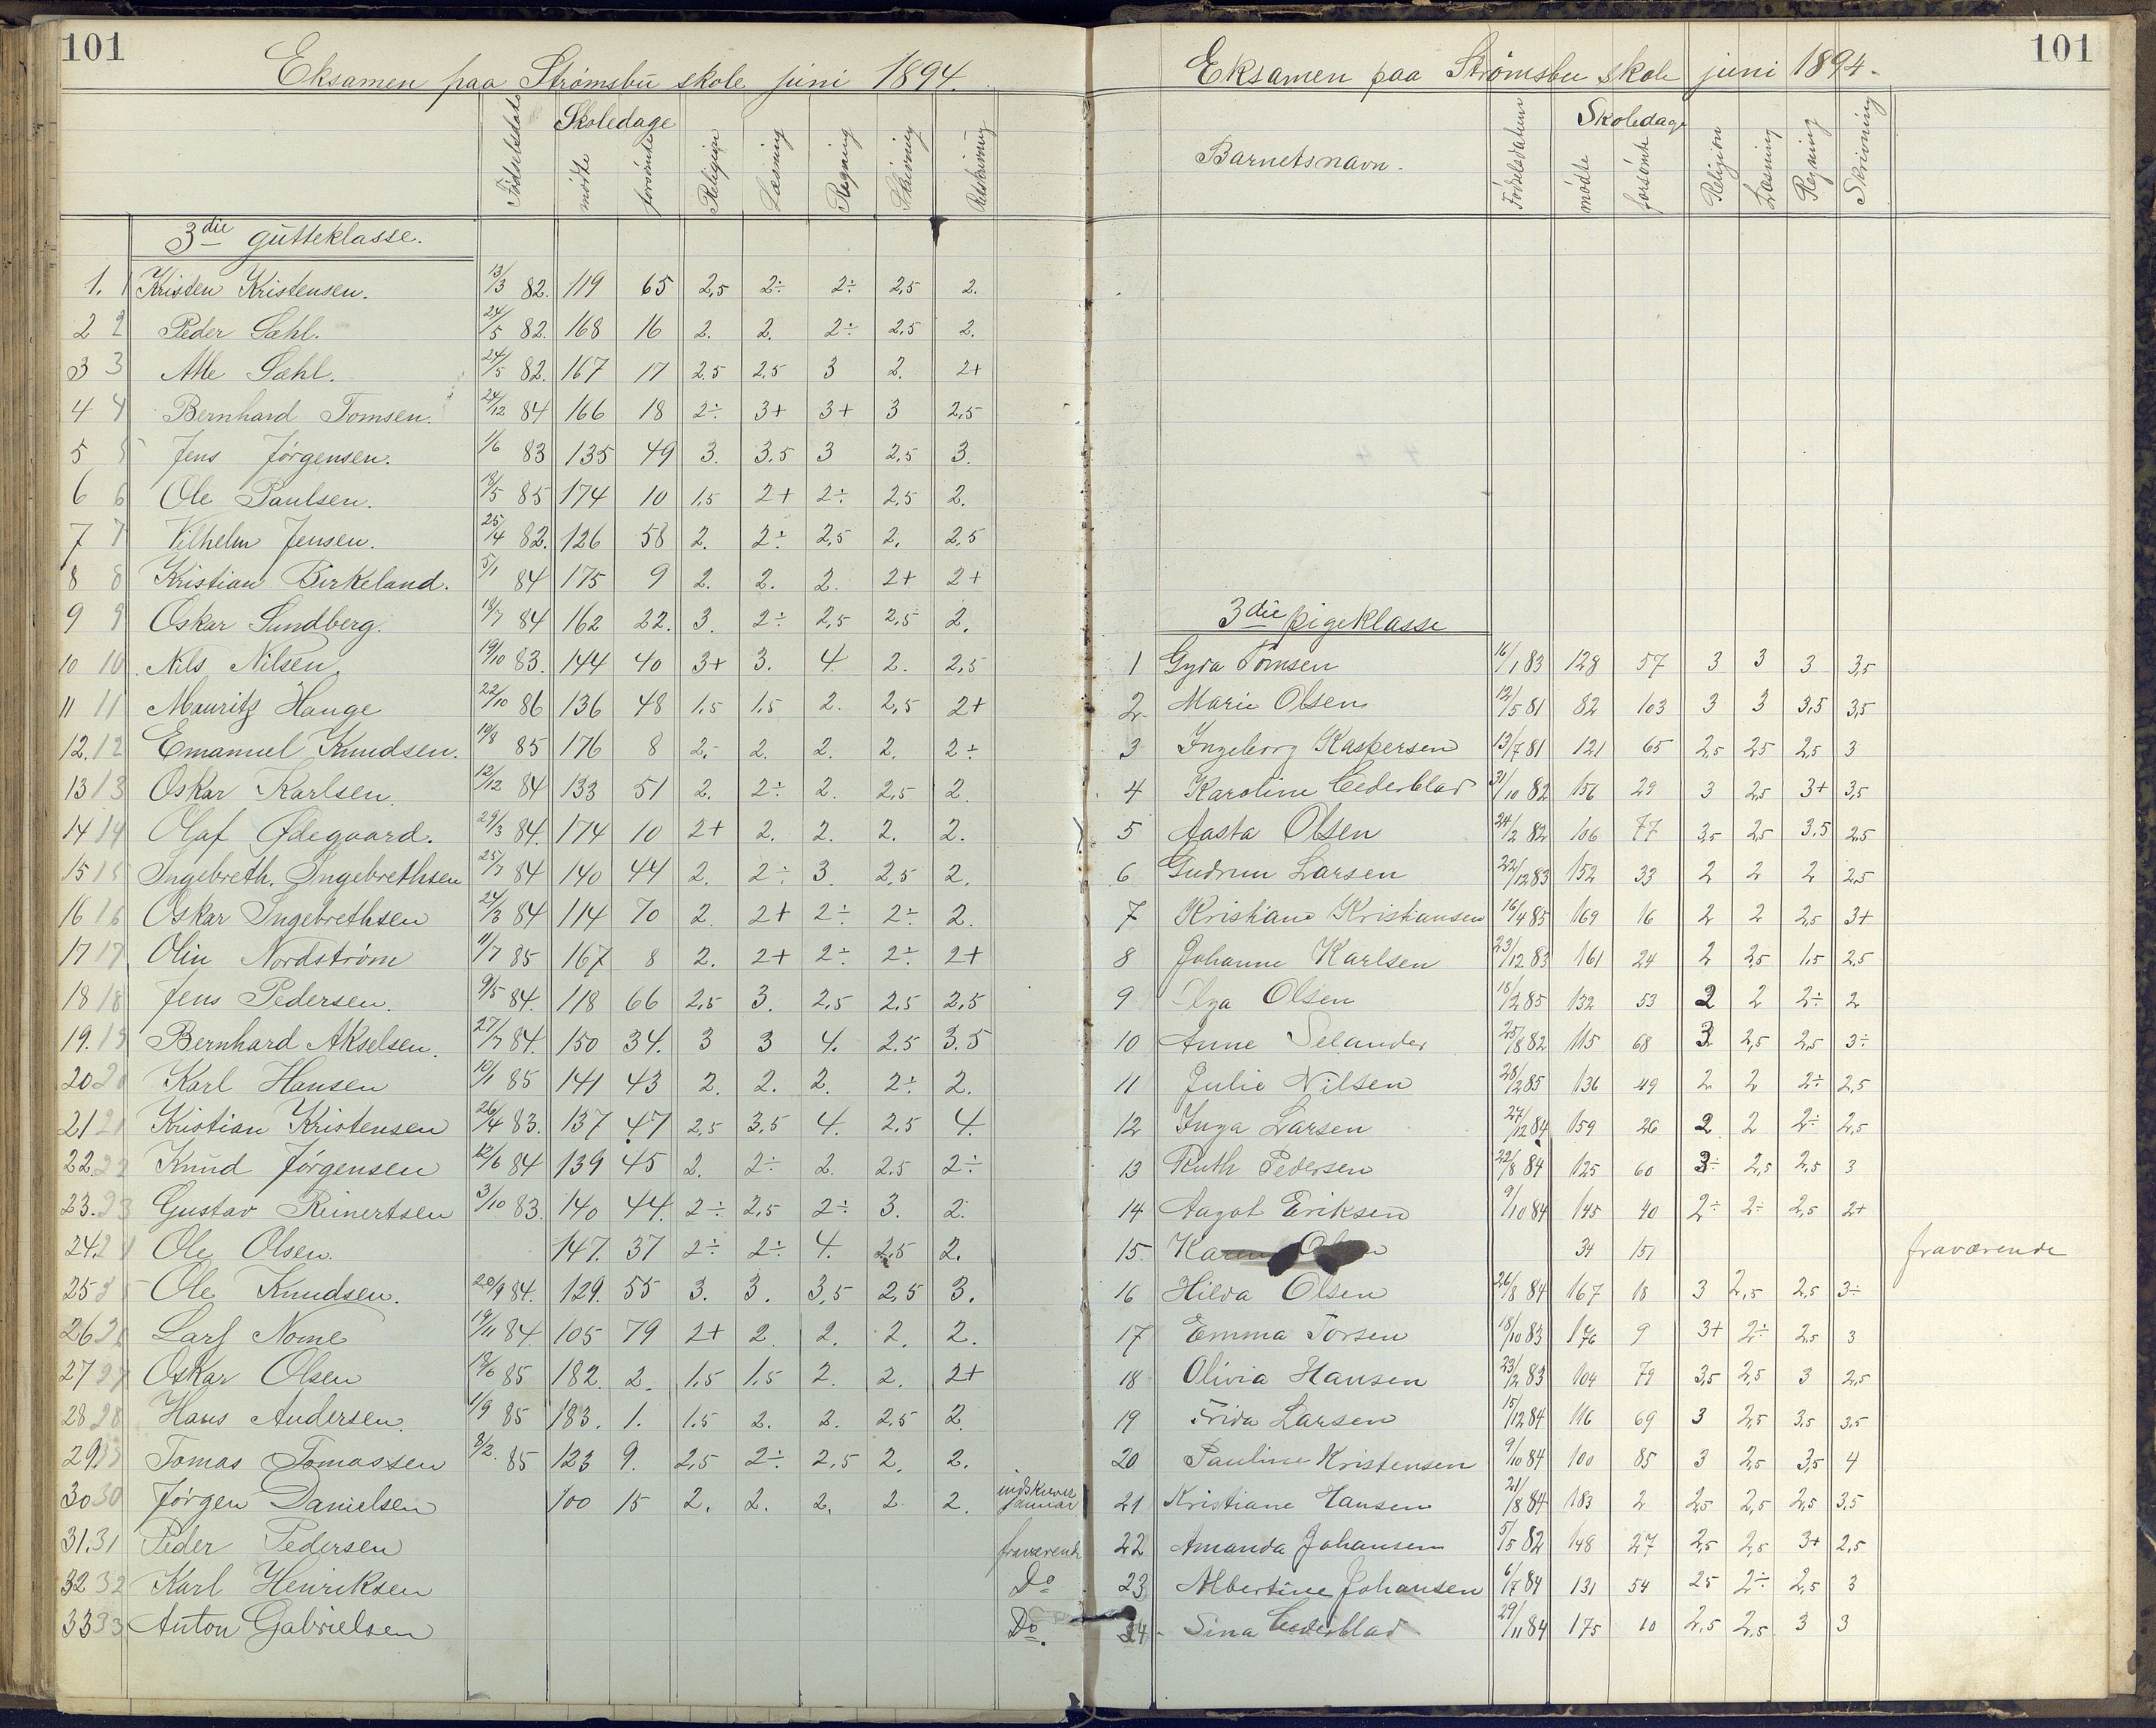 101
Eksamen paa Strømsbu skole juni 1894.
Fødselsdato Skoledage mødte forsømte Religion Læsning Regning Skrivning Retskrivning
3die gutteklasse.
1. 1 Kristen Kristensen. 13/3 82. 119 65 2,5 2÷ 2÷ 2,5 2.
2 2 Peder Sahl. 24/5 82. 168 16 2. 2. 2÷ 2,5 2.
3 3 Atle Sahl. 24/5 82. 167 17 2.5 2,5 3 2. 2+
4 4 Bernhard Tomsen. 24/12 84 166 18 2÷ 3+ 3+ 3 2,5
5 5 Jens Jørgensen. 1/6 83 135 49 3. 3.5 3 2,5 3.
6 6 Ole Paulsen. 18/5 85 174 10 1,5 2+ 2÷ 2,5 2.
7 7 Vilhelm Jensen. 25/4 82. 126 58 2. 2÷ 2,5 2. 2,5
8 8 Kristian Birkeland. 5/1 84 175 9 2. 2. 2. 2+ 2+
9 9 Oskar Sundberg. 18/7 84 162 22. 3. 2÷ 2,5 2,5 2.
10 10 Nils Nilsen. 19/10 83. 144 40 3+ 3. 4. 2. 2,5
11 11 Mauritz Hauge 22/10 86 136 48 1,5 1,5 2. 2,5 2+
12. 12 Emanuel Knudsen. 10/8 85 176 8 2,- 2. 2. 2. 2÷
13 13 Oskar Karlsen. 12/12 84 133 51 2. 2÷ 2. 2,5 2.
14 14 Olaf Ødegaard. 29/3 84. 174 10 2+ 2. 2. 2. 2.
15 15 Ingebreth. Ingebrethsen 25/7 84 140 44 2. 2÷ 3. 2,5 2.
16 16 Oskar Ingebrethsen 24/3 84 114 70 2. 2+ 2÷ 2÷ 2.
17 17 Olin Nordstrøm 11/7 85 167 8 2. 2+ 2÷ 2÷ 2+
18 18 Jens Pedersen. 9/5 84. 118 66 2,5 3. 2,5 2,5 2,5
19. 19 Bernhard Akselsen. 27/7 84. 150 34. 3 3 4. 2.5 3.5
20 20 Karl Hansen 10/1 85 141 43 2. 2. 2. 2÷ 2.
21 21 Kristian Kristensen 26/4 83. 137 47 2,5 3,5 4. 2,5 4.
22. 22 Knud Jørgensen 12/6 84 139 45 2. 2÷ 2. 2,5 2÷
23. 23 Gustav Reinertsen 3/10 83. 140 44. 2÷ 2,5 2÷ 3. 2.
24. 24 Ole Olsen. 147. 37 2÷ 2÷ 4. 2,5 2.
25 25 Ole Knudsen. 20/9 84. 129. 55 3. 3. 3,5 2,5 3.
26 26 Lars Nome 19/11 84. 105 79 2+ 2 2. 2. 2.
27 27 Oskar Olsen 18/6 85 182. 2. 1.5 1.5 2. 2. 2+
28 28 Hans Andersen. 1/9 85 183. 1. 1.5 2. 2. 2,5 2.
29. Tomas Tomassen 8/2. 85 123 9. 2,5 2÷ 2,5 2. 2.
30 30 Jørgen Danielsen 100 15 2. 2. 2. 2. 2. indskrevet januar
31. 31 Peder Pedersen fraværende
32 32 Karl Henriksen Do
33 33 Anton Gabrielsen Do.
101
Eksamen paa Strømsbu skole juni 1894.
Barnets navn. Fødselsdatum Skoledage mødte forsømte Religion Læsning Regning Skrivning
3die pigeklasse
1 Gyda Tomsen 16/1 83 128 57 3 3 3 3,5
2. Marie Olsen 12/5 81 82 103 3 3 3,5 3,5
3 Ingeborg Kaspersen 13/7 81 121 65 2,5 2,5 2,5 3
4 Karoline Cederblad 31/10 82 156 29 3 2,5 3+ 3,5
5 Aasta Olsen 24/2 82 106 77 3,5 2,5 3,5 2,5
6 Gudrun Larsen 22/12 83 152 33 2 2 2 2,5
7 Kristiane Kristiansen 16/4 85 169 16 2 2 2,5 3+
8 Johanne Karlsen 23/12 83 161 24 2 2,5 1,5 2,5
9 Olga Olsen 18/2 85 132 53 2 2 2÷ 2
10 Anne Selander 25/8 82 115 68 3 2,5 2,5 3÷
11 Julie Nilsen 28/2 85 136 49 2 2 2÷ 2,5
12 Inga Larsen 27/12 84 159 26 2 2 2÷ 2,5
13 Ruth Pedersen 22/8 84 125 60 3÷ 2,5 2,5 3
14 Aagot Eriksen 9/10 84 145 40 2÷ 2÷ 2,5 2+
15. Karen Olsen 34 151 fraværende
16 Hilda Olsen 26/8 84 167 18 3 2,5 2,5 3÷
17 Emma Torsen 18/10 83 176 9 3+ 2÷ 2,5 3
18 Olivia Hansen 23/12 83 104 79 3,5 2,5 3 2,5
19 Frida Larsen 15/12 84 116 69 3 2,5 3,5 3,5
20 Pauline Kristensen 9/10 84 100 85 3 2,5 3,5 4
21 Kristiane Hansen 21/8 84 183 2 2,5 2,5 2,5 3,5
22 Amanda Johansen 5/5 82 148 27 2,5 2,5 3+ 2,5
23 Albertine Johansen 6/7 84 131 54 25 2÷ 2,5 3
24 Sina Cederblad 29/11 84 175 10 2,5 2,5 3 3